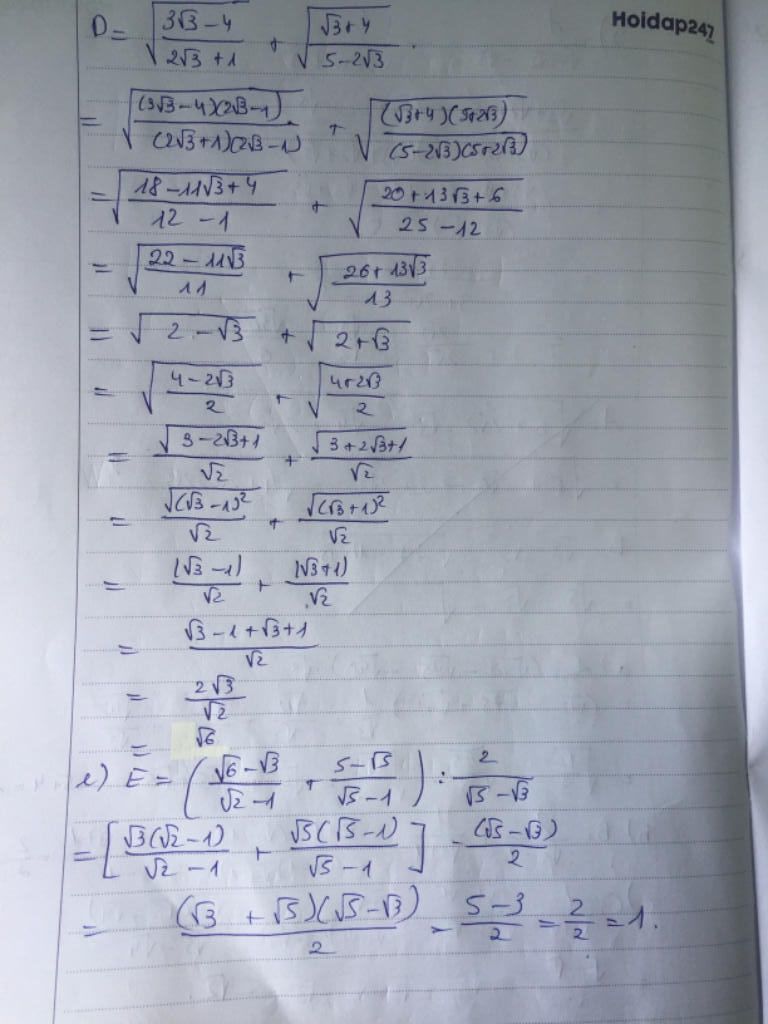 Hoidap247
D = √((3√3 − 4)/(2√3 + 1)) + √((√3 + 4)/(5 − 2√3)).
= √((3√3 − 4)(2√3 − 1)/(2√3 + 1)(2√3 − 1)) + √((√3 + 4)(5 + 2√3)/(5 − 2√3)(5 + 2√3))
= √((18 − 11√3 + 4)/(12 − 1)) + √((20 + 13√3 + 6)/(25 − 12))
= √((22 − 11√3)/11) + √((26 + 13√3)/13)
= √(2 − √3) + √(2 + √3)
= √((4 − 2√3)/2) + √((4 + 2√3)/2)
= √(3 − 2√3 + 1)/√2 + √(3 + 2√3 + 1)/√2
= √((√3 − 1)²)/√2 + √((√3 + 1)²)/√2
= |√3 − 1|/√2 + |√3 + 1|/√2
= (√3 − 1 + √3 + 1)/√2
= 2√3/√2
= √6
e) E = ((√6 − √3)/(√2 − 1) + (5 − √5)/(√5 − 1)) : 2/(√5 − √3)
= [√3(√2 − 1)/(√2 − 1) + √5(√5 − 1)/(√5 − 1)] · (√5 − √3)/2
= (√3 + √5)(√5 − √3)/2 = (5 − 3)/2 = 2/2 = 1.